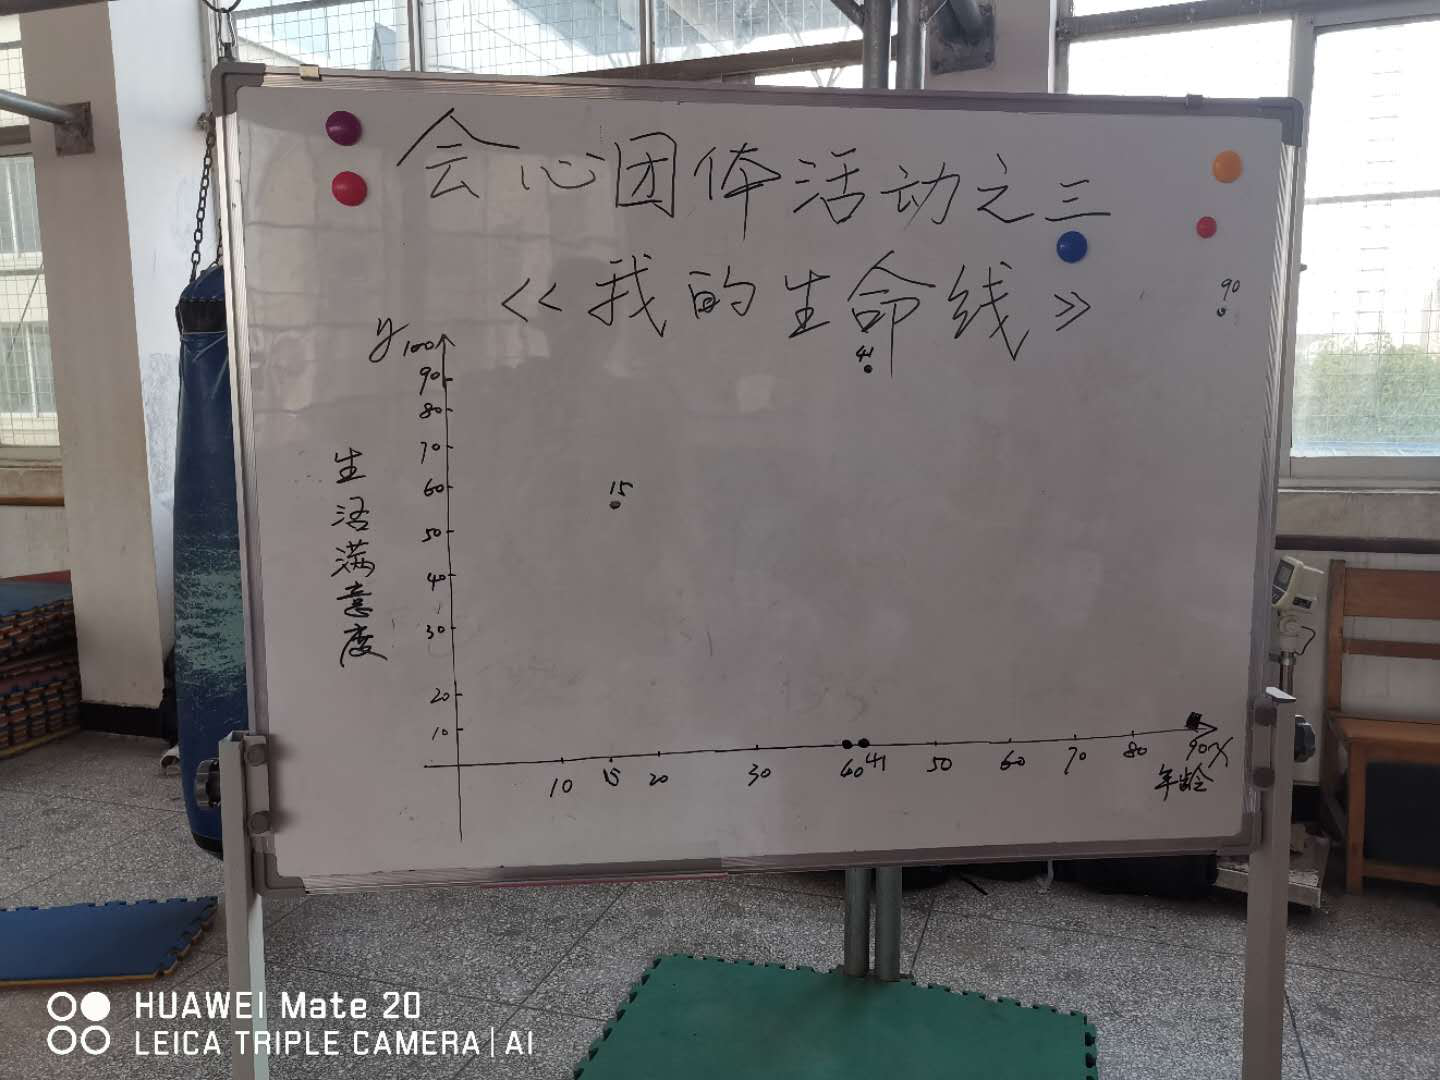 会心团体活动之三
<<我的生命线>>
y
100
90
80
70
60
50
40
30
20
10
生活满意度
15
41
90
10 15 20 30 40 41 50 60 70 80 90 x
年龄
HUAWEI Mate 20
LEICA TRIPLE CAMERA | AI